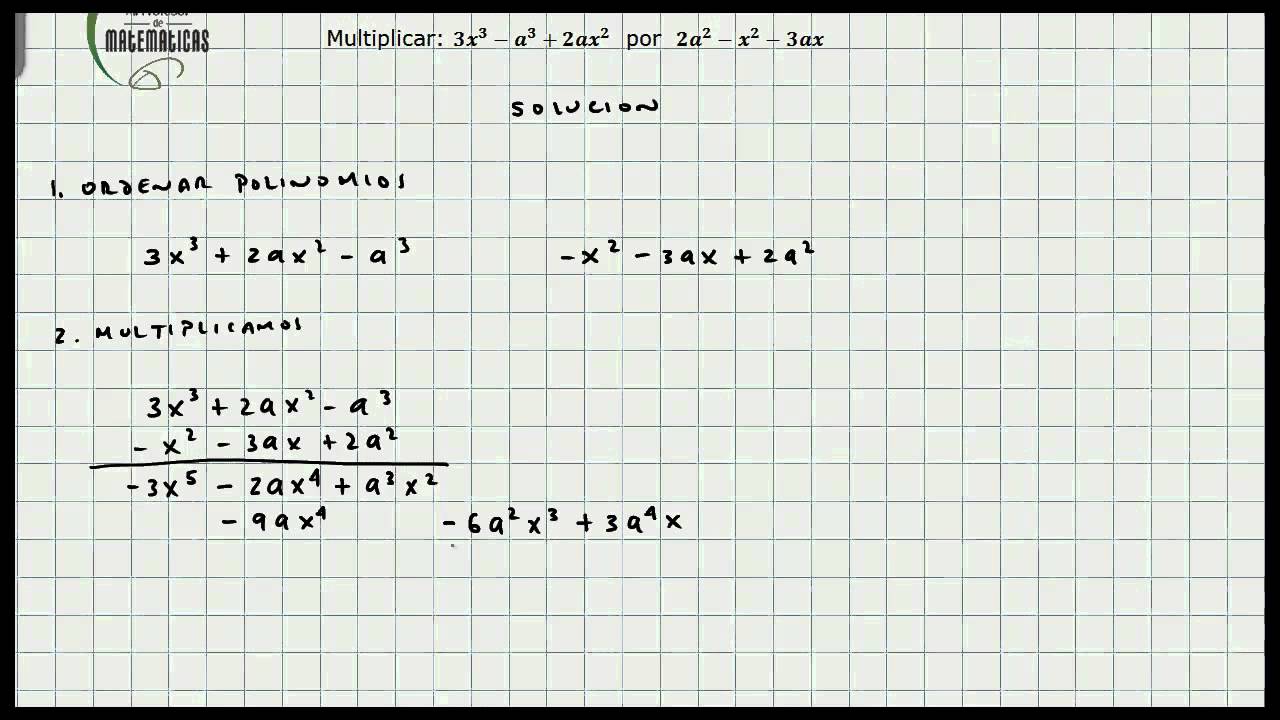 de
MATEMATICAS
Multiplicar: 3x³ − a³ + 2ax² por 2a² − x² − 3ax
SOLUCION
1. ORDENAR POLINOMIOS
3x³ + 2ax² - a³ -x² - 3ax + 2a²
2. MULTIPLICAMOS
3x³ + 2ax² - a³
- x² - 3ax + 2a²
-3x⁵ - 2ax⁴ + a³x²
- 9ax⁴ - 6a²x³ + 3a⁴x